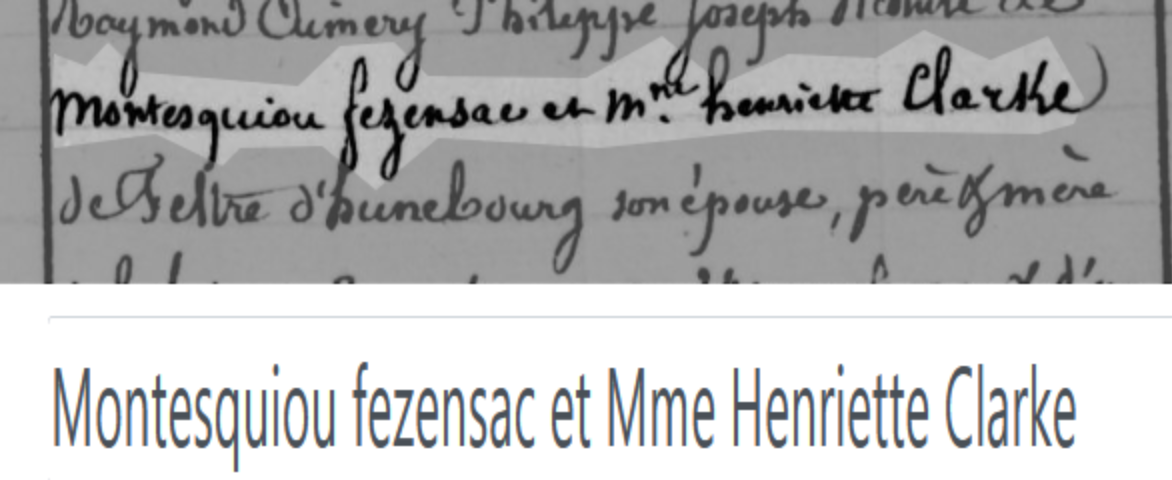 Raymond Aimery Philippe Joseph Vicomte de
Montesquiou fezensac et Mme henriette Clarke
de Feltre d'hunebourg son épouse, père & mère
Montesquiou fezensac et Mme Henriette Clarke